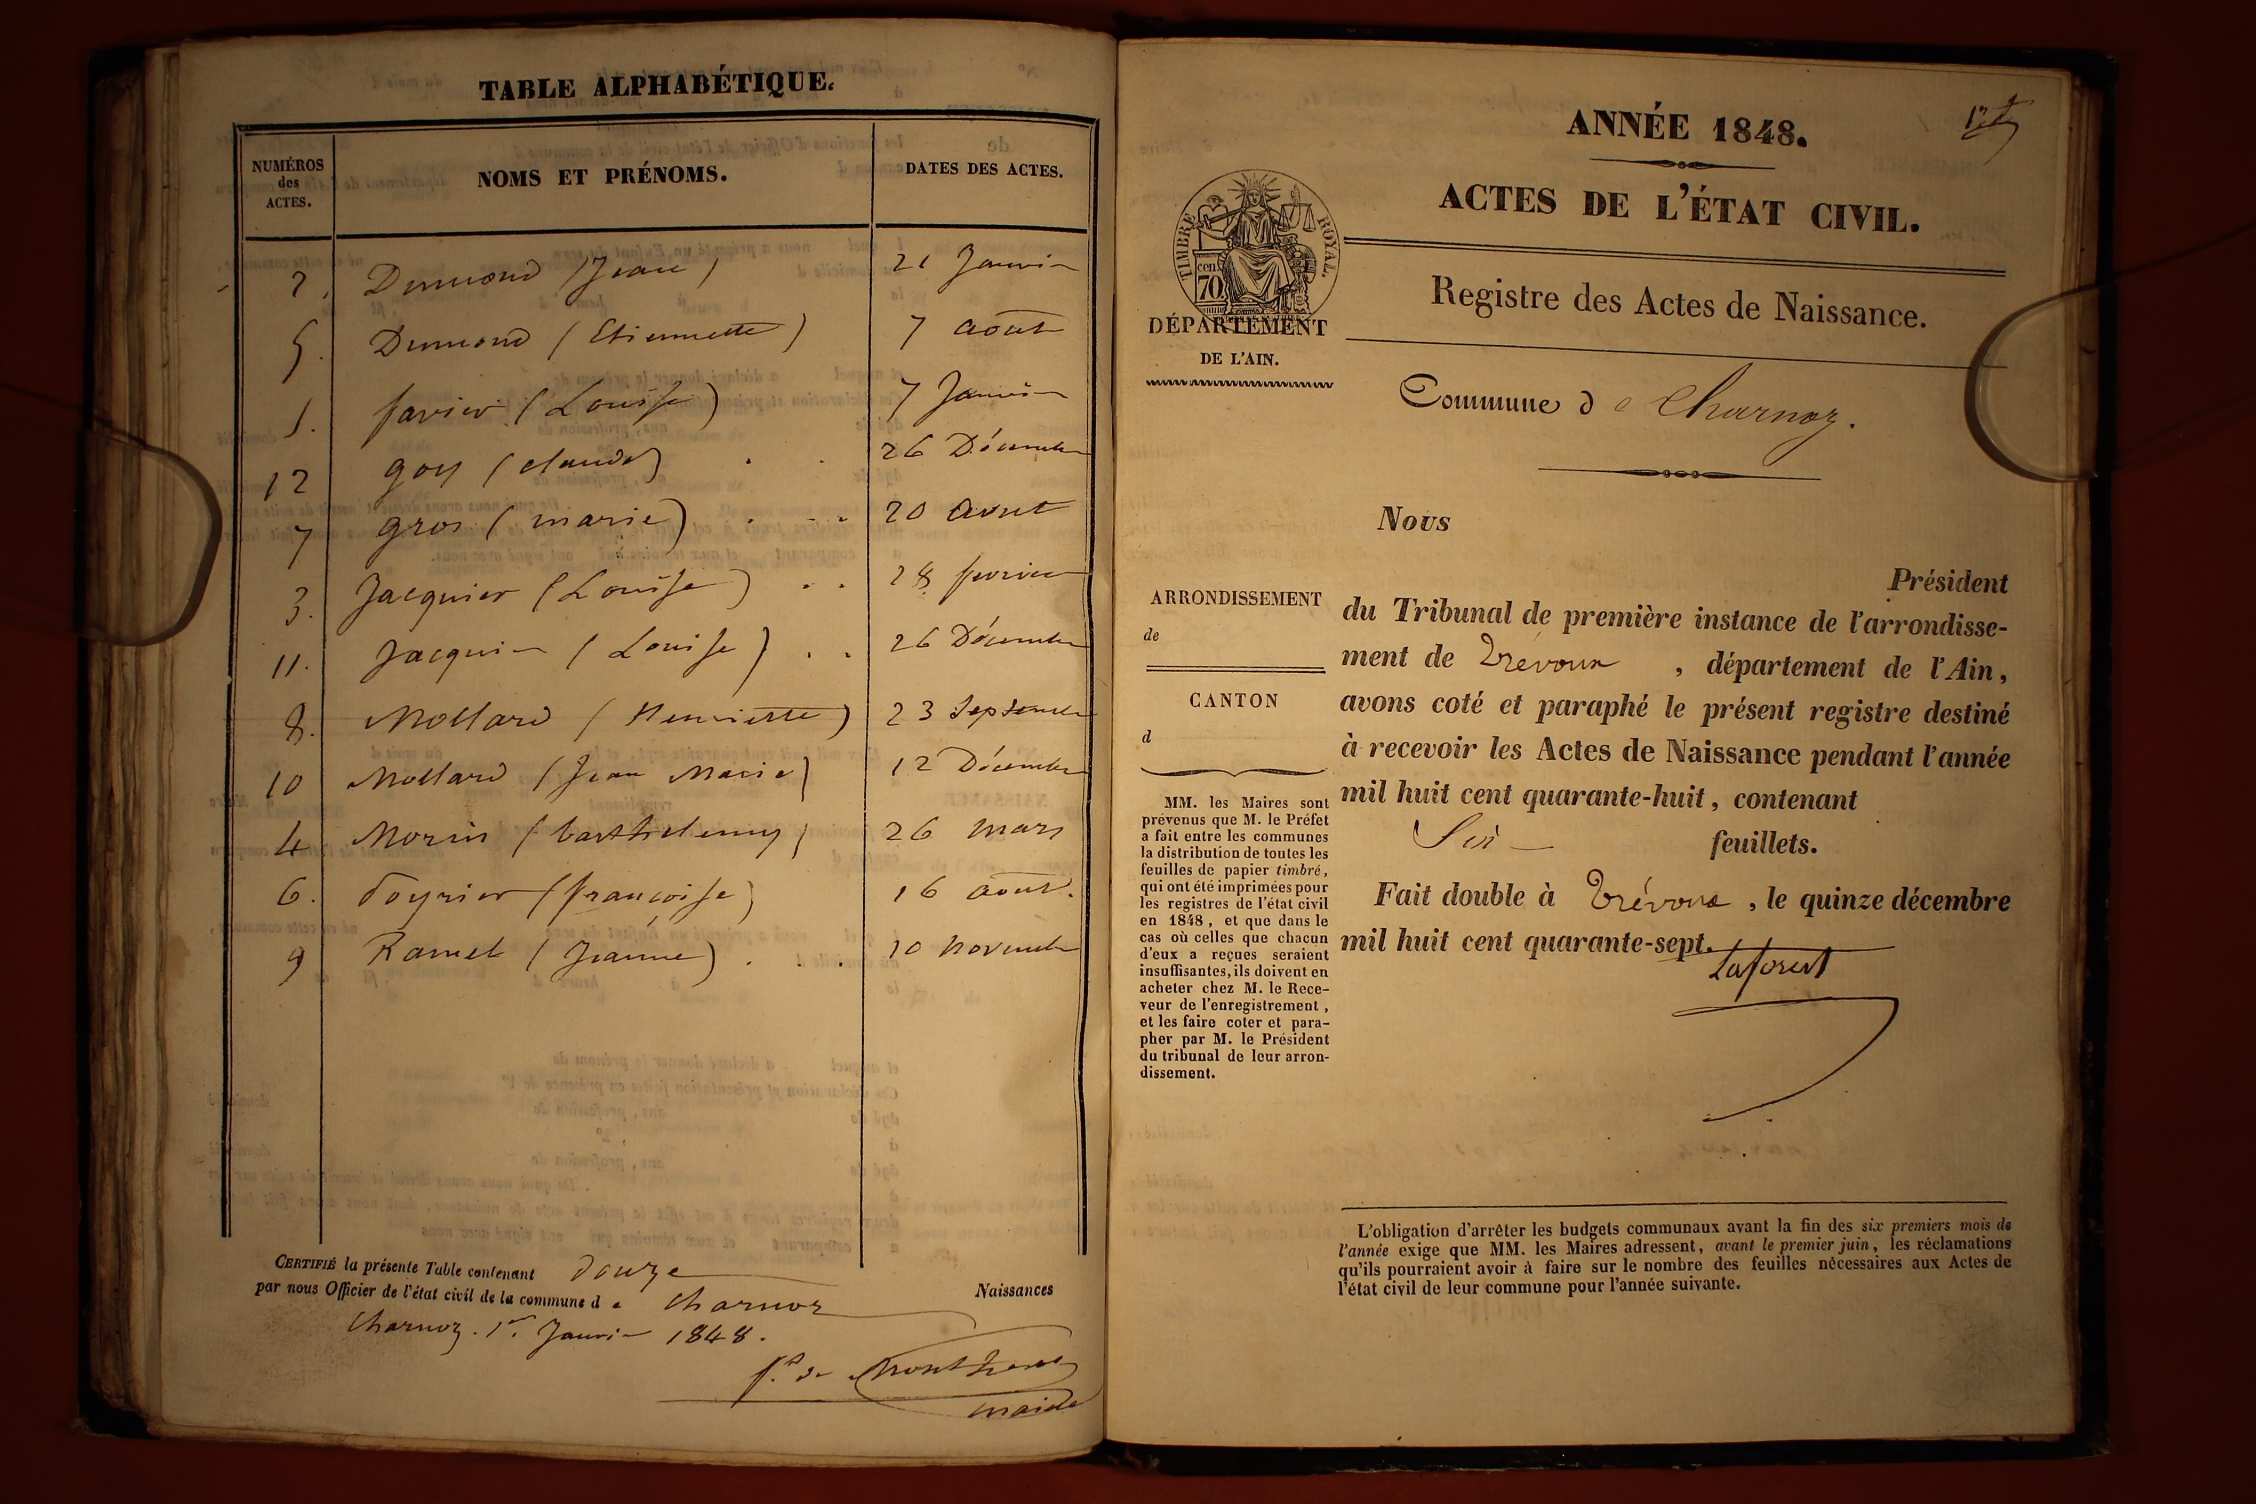 TABLE ALPHABÉTIQUE.
NUMÉROS
des
ACTES.
NOMS ET PRÉNOMS.
DATES DES ACTES.
2. Dumond (Jean) 21 Janvier
5. Dumond (Etiennette) 7 aout
1. favier (Louise) 7 Janvier
12 goy (claude) . . 26 Décembre
7 gros (marie) . . . 20 aout
3. Jacquier (Louise) . . 28 fevrier
11. Jacquier (Louise) . . 26 Décembre
8. Mollard (Henriette) 23 Septembre
10 Mollard (Jean Marie) 12 Décembre
4 Morin (barthelemy) 26 mars
6. Poyrier (françoise) 16 aout.
9 Ramel (Jeanne) . . . 10 novembre
CERTIFIÉ la présente Table contenant douze Naissances
par nous Officier de l'état civil de la commune de Charnoz
Charnoz. 1er. Janvier 1848.
maire
ANNÉE 1848.
ACTES DE L'ÉTAT CIVIL.
TIMBRE ROYAL.
cen.
70
Registre des Actes de Naissance.
DÉPARTEMENT
DE L'AIN.
Commune de Charnoz.
Nous
Président
du Tribunal de première instance de l'arrondisse-
ment de Trévoux , département de l'Ain,
avons coté et paraphé le présent registre destiné
à recevoir les Actes de Naissance pendant l'année
mil huit cent quarante-huit, contenant
Six feuillets.
Fait double à Trévoux , le quinze décembre
mil huit cent quarante-sept.
Laforest
ARRONDISSEMENT
de
CANTON
d
MM. les Maires sont
prévenus que M. le Préfet
a fait entre les communes
la distribution de toutes les
feuilles de papier timbré,
qui ont été imprimées pour
les registres de l'état civil
en 1848, et que dans le
cas où celles que chacun
d'eux a reçues seraient
insuffisantes, ils doivent en
acheter chez M. le Rece-
veur de l'enregistrement,
et les faire coter et para-
pher par M. le Président
du tribunal de leur arron-
dissement.
L'obligation d'arrêter les budgets communaux avant la fin des six premiers mois de
l'année exige que MM. les Maires adressent, avant le premier juin, les réclamations
qu'ils pourraient avoir à faire sur le nombre des feuilles nécessaires aux Actes de
l'état civil de leur commune pour l'année suivante.